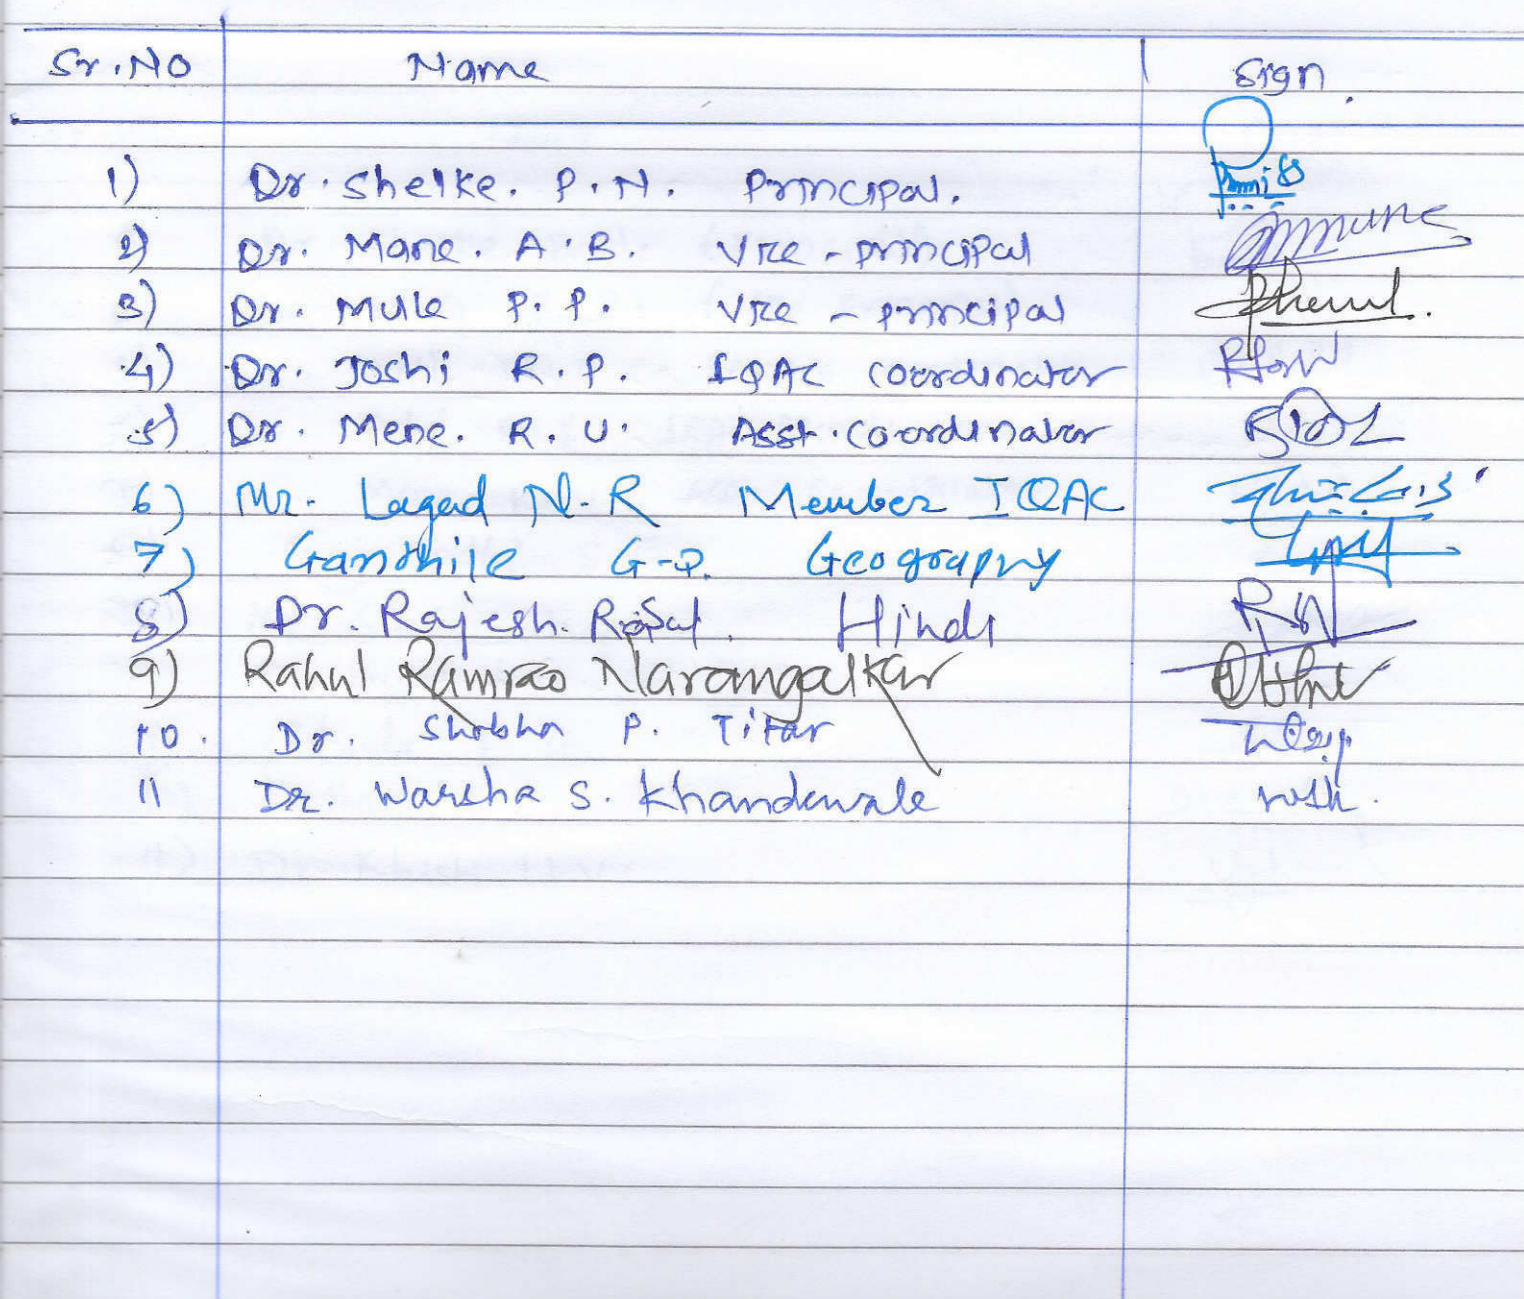 Sr.No Name Sign
1) Dr. Shelke. P.N. Principal.
2) Dr. Mane. A.B. Vice-principal
3) Dr. Mule P.P. Vice-principal
4) Dr. Joshi R.P. IQAC coordinator
5) Dr. Mene. R.U. Asst. Coordinator
6) Mr. Lagad N.R Member IQAC
7) G. Geography
8) Dr. Rajesh. Hindi
9) Rahul Ramrao Narangalkar
10. Dr. Shobha P. Titar
11 Dr. Warsha S. Khandewale